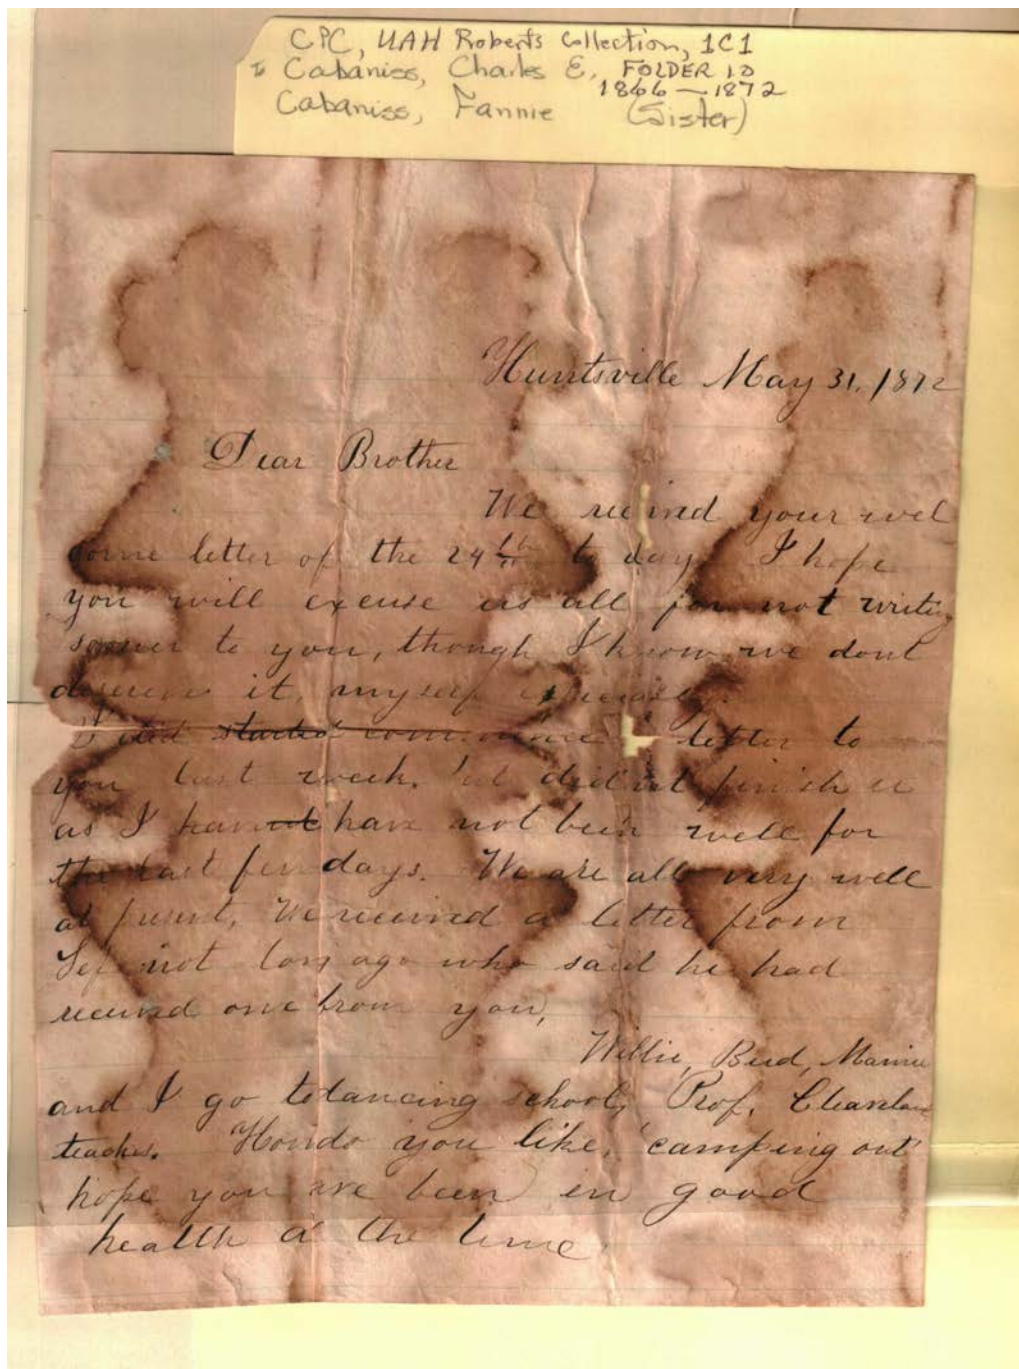 CPC, UAH Roberts Collection, 1C1
to Cabaniss, Charles E, FOLDER 10
1866-1872
Cabaniss, Fannie (Sister)
Huntsville May 31, 1872
Dear Brother
We recieved your wel
come letter of the 24th to day. I hope
you will excuse us all for not writing
sooner to you, though I know we dont
deserve it, myself especially.
I did started commence a letter to
you last week, but did not finish it
as I have not have not been well for
the last few days. We are all very well
at present, We received a letter from
Sep not long ago who said he had
received one from you,
Willie, Bird, Mamie
and I go to dancing school, Prof.
teacher. How do you like, "camping out"
hope you have been in good
health a the time